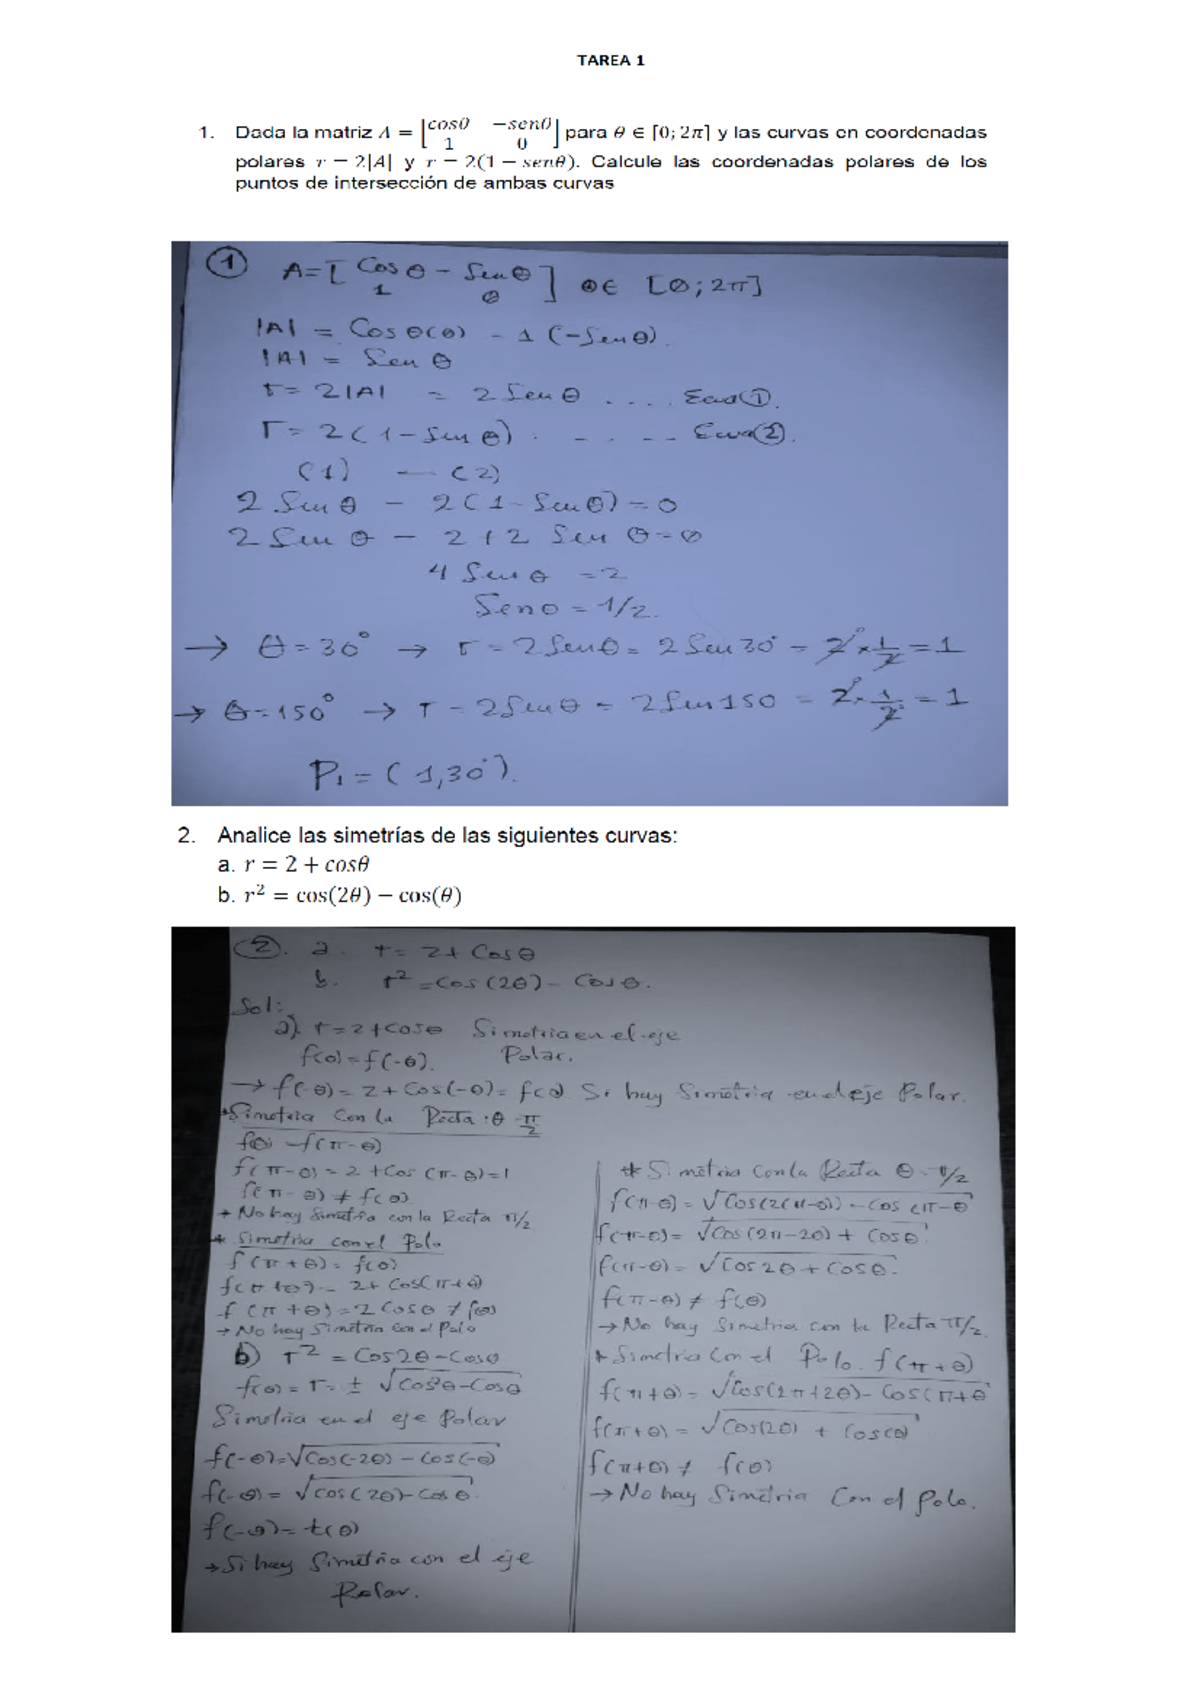 TAREA 1
1. Dada la matriz A = [cosθ −senθ
1 0] para θ ∈ [0; 2π] y las curvas en coordenadas
polares r = 2|A| y r = 2(1 − senθ). Calcule las coordenadas polares de los
puntos de intersección de ambas curvas
① A=[Cos θ - Sen θ
1 0] θ∈ [0; 2π]
|A| = Cos θ(0) - 1 (-Sen θ).
|A| = Sen θ
r = 2|A| = 2 Sen θ .... Ecua①.
r = 2(1-Sen θ). .... Ecua②.
(1) — (2)
2 Sen θ - 2(1-Sen θ) = 0
2 Sen θ - 2 + 2 Sen θ = 0
4 Sen θ = 2
Senθ = 1/2.
→ θ = 30° → r = 2Senθ = 2 Sen 30° = 2 × 1/2 = 1
→ θ = 150° → r = 2Senθ = 2Sen150 = 2 × 1/2 = 1
P₁ = (1,30°).
2. Analice las simetrías de las siguientes curvas:
a. r = 2 + cosθ
b. r² = cos(2θ) − cos(θ)
②. a. r = 2 + Cos θ
b. r² = Cos (2θ) - Cos θ.
Sol:
a). r = 2 + Cos θ Simetria en el eje
f(θ) = f(-θ). Polar.
→ f(-θ) = 2 + Cos(-θ) = f(θ) Si hay Simetria en el Eje Polar.
*Simetria Con la Recta : θ = π/2
f(θ) = f(π-θ)
f(π-θ) = 2 + Cos (π-θ) = 1
f(π-θ) ≠ f(θ)
→ No hay Simetria con la Recta π/2
* Simetria con el Polo
f(π+θ) = f(θ)
f(π+θ) = 2 + Cos(π+θ)
f(π+θ) = 2 Cos θ ≠ f(θ)
→ No hay Simetria Con el Polo
b) r² = Cos2θ - Cosθ
f(θ) = r = ± √Cos2θ-Cosθ
Simetria en el eje Polar
f(-θ) = √Cos(-2θ) - Cos(-θ)
f(-θ) = √Cos(2θ)-Cos θ.
f(-θ) = f(θ)
→ Si hay Simetria con el eje
Polar.
* Simetria con la Recta θ = π/2
f(π-θ) = √Cos(2(π-θ)) - Cos(π-θ
f(π-θ) = √Cos(2π-2θ) + Cosθ.
f(π-θ) = √Cos2θ + Cosθ.
f(π-θ) ≠ f(θ)
→ No hay Simetria con la Recta π/2.
* Simetria Con el Polo. f(π+θ)
f(π+θ) = √Cos(2π+2θ)-Cos(π+θ
f(π+θ) = √Cos(2θ) + Cos(θ)
f(π+θ) ≠ f(θ)
→ No hay Simetria Con el Polo.